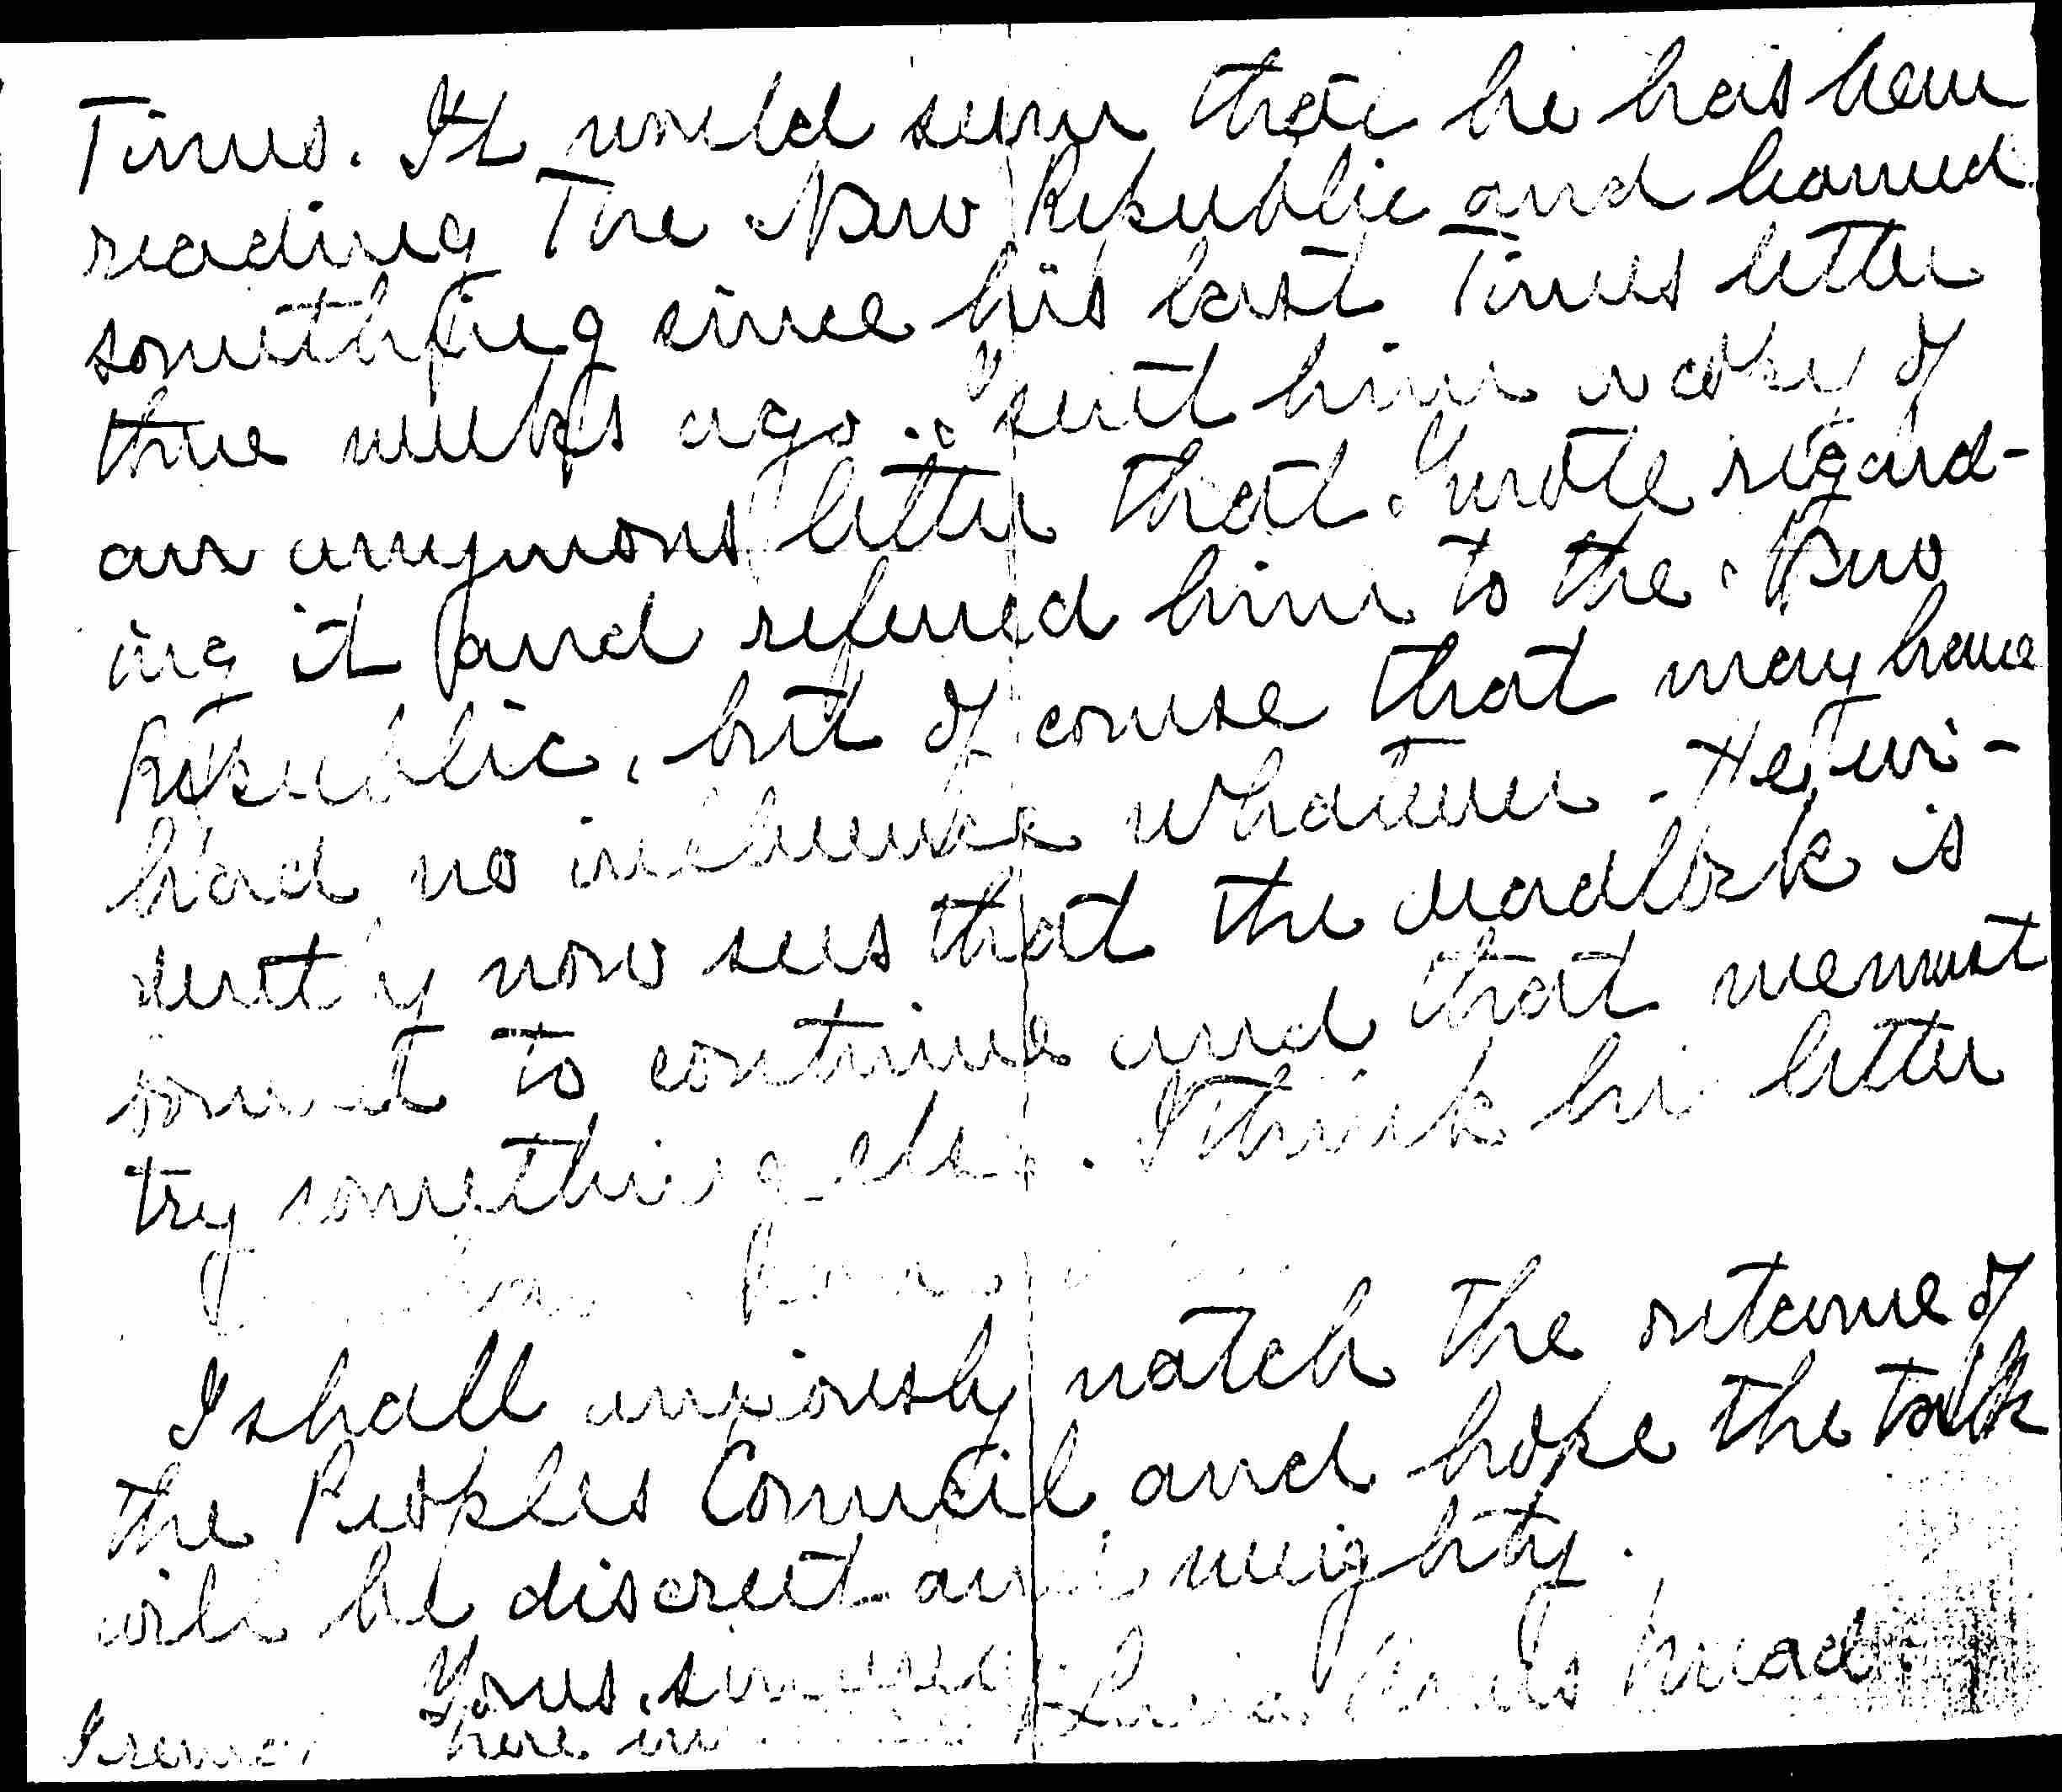 Times. It would seem that he has been
reading The New Republic and learned
something since his last Times letter
three weeks ago. I sent him a copy of
an anymous letter that I wrote regard-
ing it and referred him to the New
Republic, but of course that may have
had no influence whatever. He evi-
dently now sees that the deadlock is
bound to continue and that we must
try something else. I think his letter
I shall anxiously watch the outcome of
the Peoples Council and hope the talk
will be discreet and weighty.
Yours sincerely Lucia Ames Mead
I remain here in